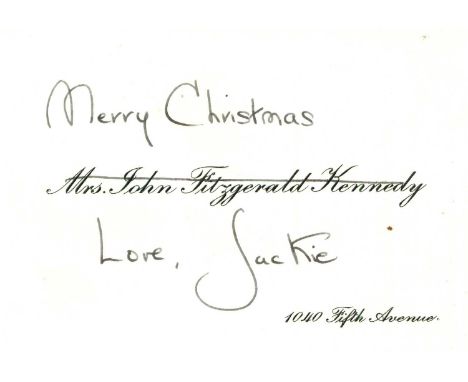 Merry Christmas
Mrs. John Fitzgerald Kennedy
Love, Jackie
1040 Fifth Avenue.